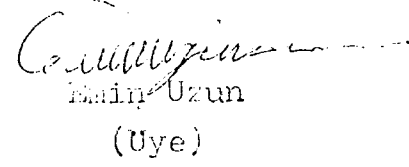 Emin Uzun
(Uye)